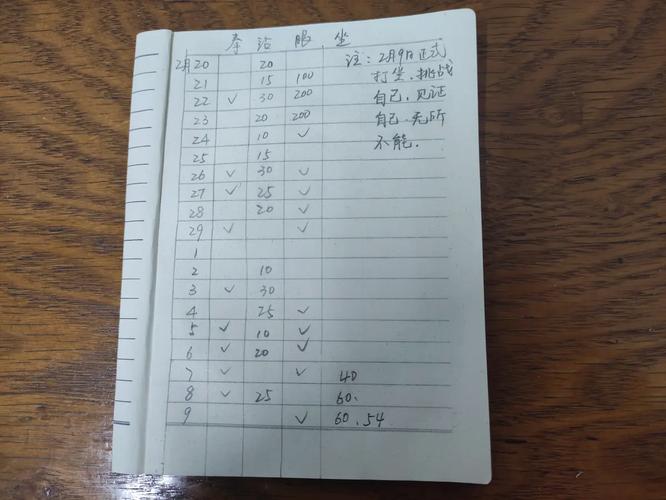 拳 站 服 坐
2月20 20 注：2月9日正式
21 15 100 打坐，挑战
22 ✓ 30 200 自己，见证
23 20 200 自己无所
24 10 ✓ 不能．
25 15
26 ✓ 30 ✓
27 ✓ 25 ✓
28 20 ✓
29 ✓ ✓
1
2 10
3 ✓ 30
4 25 ✓
5 ✓ 10 ✓
6 ✓ 20 ✓
7 ✓ ✓ 40
8 ✓ 25 60.
9 ✓ 60.54